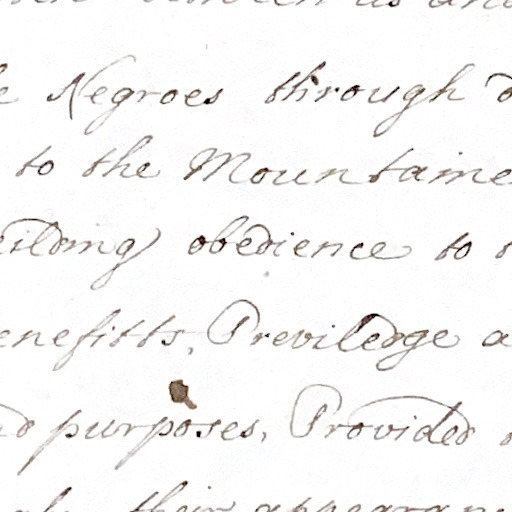 e Negroes through
to the Mountaine
eilding obedience to
enefitts, Previledge a
nd purposes, Provided
their appearan